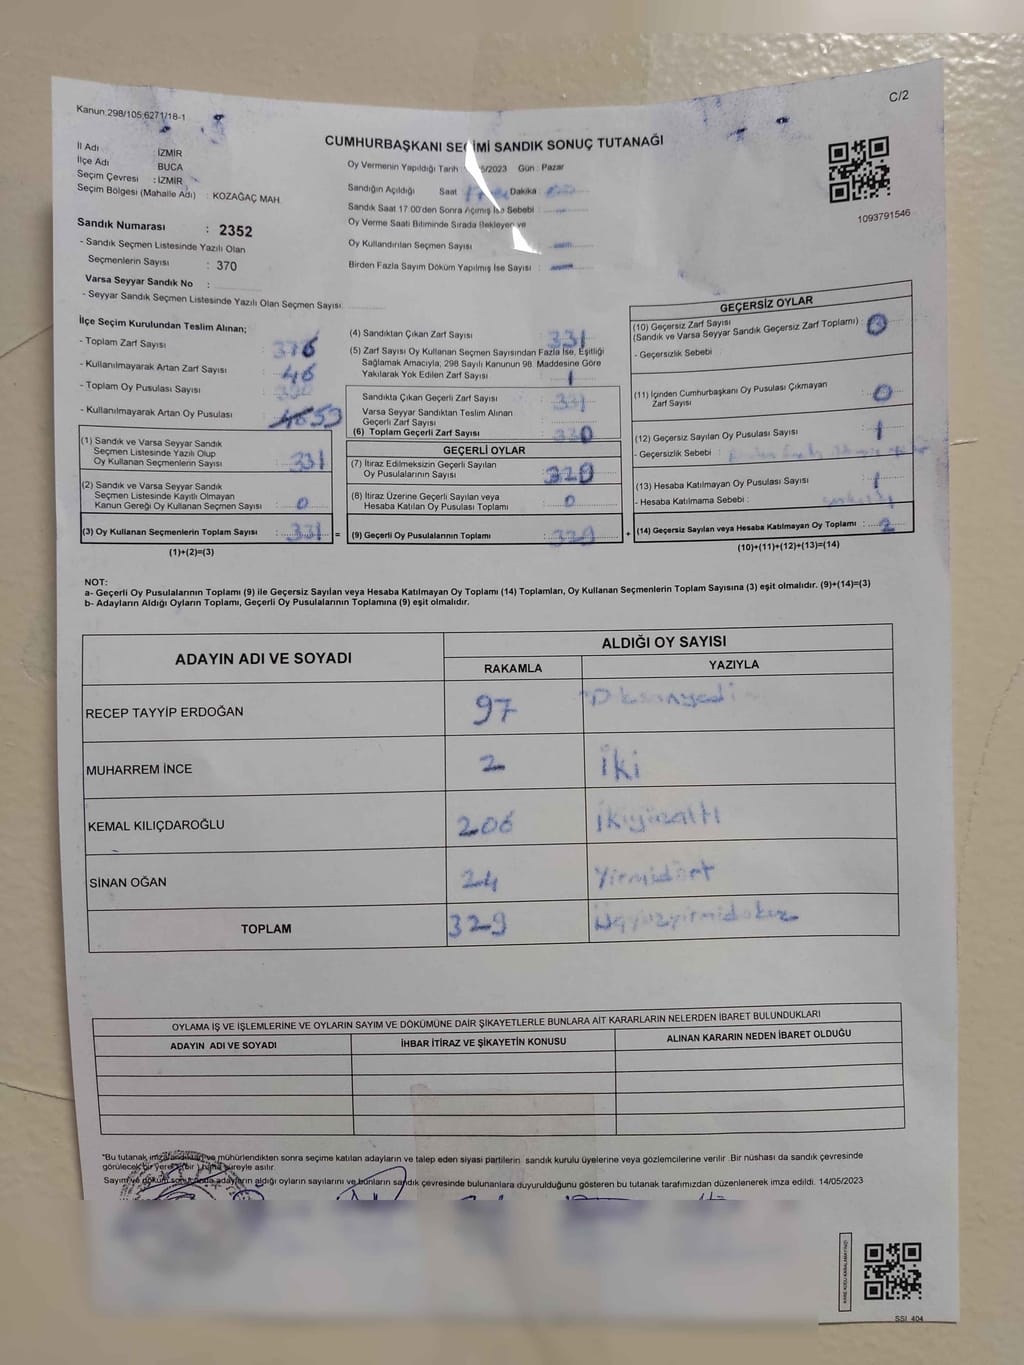 Kanun:298/105;6271/18-1
C/2
CUMHURBAŞKANI SEÇİMİ SANDIK SONUÇ TUTANAĞI
İl Adı İZMİR
İlçe Adı BUCA
Seçim Çevresi : İZMİR
Seçim Bölgesi (Mahalle Adı) : KOZAĞAÇ MAH.
Oy Vermenin Yapıldığı Tarih 5/2023 Gün : Pazar
Sandığın Açıldığı Saat Dakika
Sandık Saat 17:00'den Sonra Açımış İse Sebebi :
Oy Verme Saati Bitiminde Sırada Bekleyen ve
Oy Kullandırılan Seçmen Sayısı
Birden Fazla Sayım Döküm Yapılmış İse Sayısı :
1093791546
Sandık Numarası : 2352
- Sandık Seçmen Listesinde Yazılı Olan
Seçmenlerin Sayısı : 370
Varsa Seyyar Sandık No :
- Seyyar Sandık Seçmen Listesinde Yazılı Olan Seçmen Sayısı:
İlçe Seçim Kurulundan Teslim Alınan;
- Toplam Zarf Sayısı
- Kullanılmayarak Artan Zarf Sayısı : 46
- Toplam Oy Pusulası Sayısı
- Kullanılmayarak Artan Oy Pusulası
(1) Sandık ve Varsa Seyyar Sandık
Seçmen Listesinde Yazılı Olup
Oy Kullanan Seçmenlerin Sayısı : 331
(2) Sandık ve Varsa Seyyar Sandık
Seçmen Listesinde Kayıtlı Olmayan
Kanun Gereği Oy Kullanan Seçmen Sayısı : 0
(3) Oy Kullanan Seçmenlerin Toplam Sayısı : 331 =
(1)+(2)=(3)
(4) Sandıktan Çıkan Zarf Sayısı : 331
(5) Zarf Sayısı Oy Kullanan Seçmen Sayısından Fazla İse, Eşitliği
Sağlamak Amacıyla; 298 Sayılı Kanunun 98. Maddesine Göre
Yakılarak Yok Edilen Zarf Sayısı : 1
Sandıkta Çıkan Geçerli Zarf Sayısı : 331
Varsa Seyyar Sandıktan Teslim Alınan
Geçerli Zarf Sayısı :
(6) Toplam Geçerli Zarf Sayısı : 330
GEÇERLİ OYLAR
(7) İtiraz Edilmeksizin Geçerli Sayılan
Oy Pusulalarının Sayısı : 329
(8) İtiraz Üzerine Geçerli Sayılan veya
Hesaba Katılan Oy Pusulası Toplamı : 0
(9) Geçerli Oy Pusulalarının Toplamı : 329 +
GEÇERSİZ OYLAR
(10) Geçersiz Zarf Sayısı
(Sandık ve Varsa Seyyar Sandık Geçersiz Zarf Toplamı) : 0
- Geçersizlik Sebebi :
(11) İçinden Cumhurbaşkanı Oy Pusulası Çıkmayan
Zarf Sayısı : 0
(12) Geçersiz Sayılan Oy Pusulası Sayısı : 1
- Geçersizlik Sebebi :
(13) Hesaba Katılmayan Oy Pusulası Sayısı : 1
- Hesaba Katılmama Sebebi :
(14) Geçersiz Sayılan veya Hesaba Katılmayan Oy Toplamı : 2
(10)+(11)+(12)+(13)=(14)
NOT:
a- Geçerli Oy Pusulalarının Toplamı (9) ile Geçersiz Sayılan veya Hesaba Katılmayan Oy Toplamı (14) Toplamları, Oy Kullanan Seçmenlerin Toplam Sayısına (3) eşit olmalıdır. (9)+(14)=(3)
b- Adayların Aldığı Oyların Toplamı, Geçerli Oy Pusulalarının Toplamına (9) eşit olmalıdır.
ADAYIN ADI VE SOYADI
ALDIĞI OY SAYISI
RAKAMLA YAZIYLA
RECEP TAYYİP ERDOĞAN 97 Doksanyedi
MUHARREM İNCE 2 İki
KEMAL KILIÇDAROĞLU 206 İkiyüzaltı
SİNAN OĞAN 24 Yirmidört
TOPLAM 329 Üçyüzyirmidokuz
OYLAMA İŞ VE İŞLEMLERİNE VE OYLARIN SAYIM VE DÖKÜMÜNE DAİR ŞİKAYETLERLE BUNLARA AİT KARARLARIN NELERDEN İBARET BULUNDUKLARI
ADAYIN ADI VE SOYADI İHBAR İTİRAZ VE ŞİKAYETİN KONUSU ALINAN KARARIN NEDEN İBARET OLDUĞU
*Bu tutanak imzalandıktan ve mühürlendikten sonra seçime katılan adayların ve talep eden siyasi partilerin sandık kurulu üyelerine veya gözlemcilerine verilir. Bir nüshası da sandık çevresinde
görülecek bir yere (bir ) hafta süreyle asılır.
Sayım ve döküm sonunda adayların aldığı oyların sayılarını ve bunların sandık çevresinde bulunanlara duyurulduğunu gösteren bu tutanak tarafımızdan düzenlenerek imza edildi. 14/05/2023
SSI_404